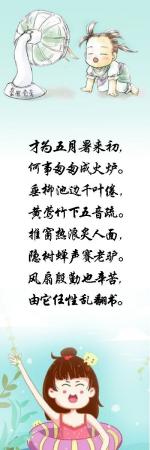 才为五月暑来初,
何事匆匆成火炉。
垂柳池边千叶倦,
黄莺竹下五音疏。
推窗热浪炙人面,
隐树蝉声赛老驴。
风扇殷勤也辛苦,
由它任性乱翻书。